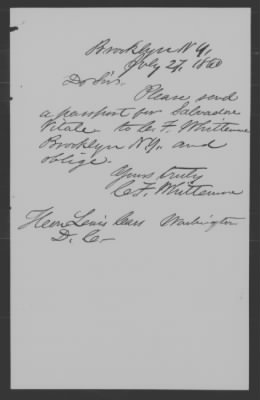 Brooklyn N.Y.
July 27, 1860
Dr Sir.
Please send
a passport for Salvadore
Vitale to C. F. Whittemore
Brooklyn N.Y. and
oblige.
Yours truly
C. F. Whittemore
Hon Lewis Cass Washington
D. C.